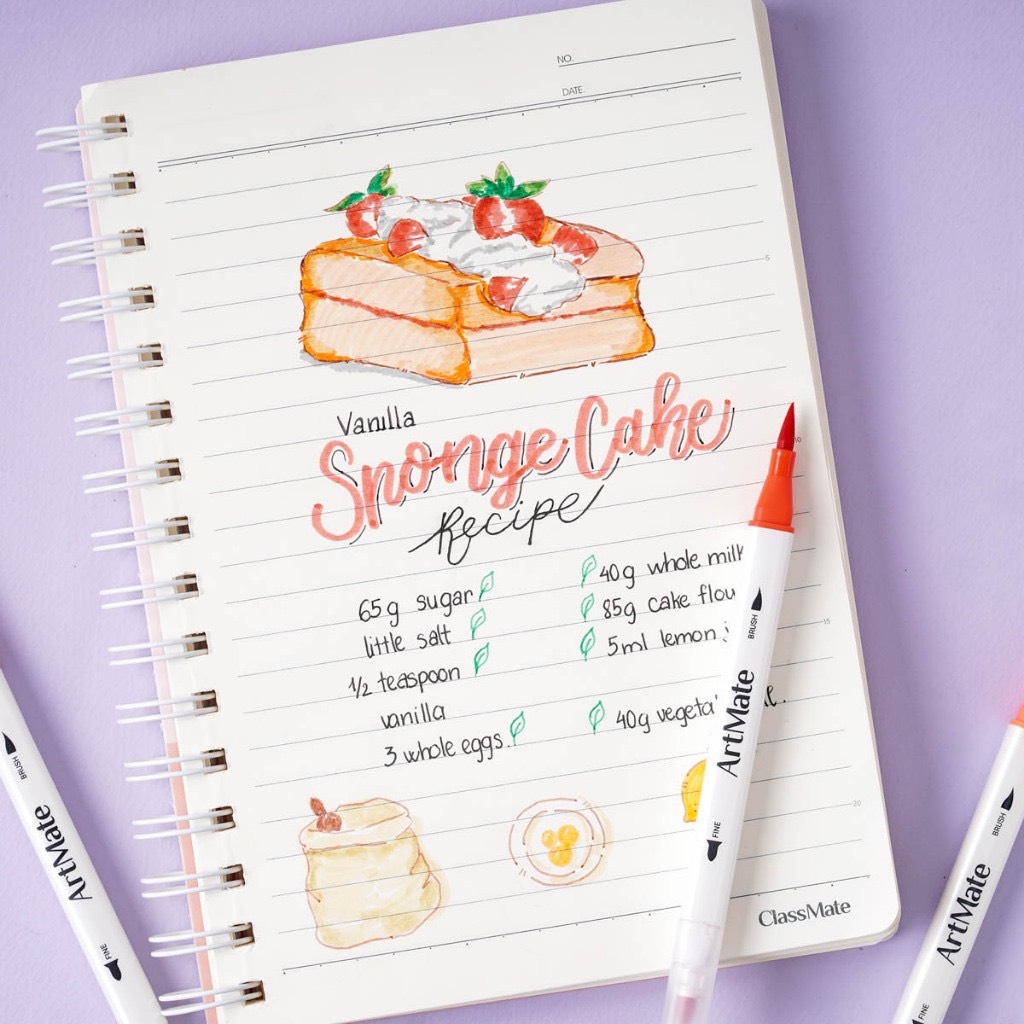 NO.
DATE.
5
Vanilla
Sponge Cake
Recipe
10
65g sugar
little salt
1/2 teaspoon
vanilla
3 whole eggs.
40g whole milk
85g cake flou
5ml lemon
40g
15
20
ClassMate
ArtMate
BRUSH
FINE
ArtMate
BRUSH
FINE
ArtMate
BRUSH
FINE